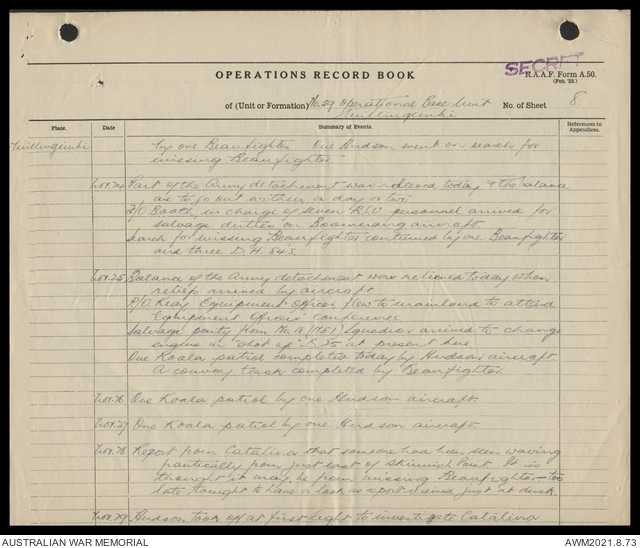 SECRET
OPERATIONS RECORD BOOK
R.A.A.F. Form A.50.
(Feb. '22.)
of (Unit or Formation) No. 59 Operational Base Unit
Millingimbi
No. of Sheet 8.
Place. Date Summary of Events. References to Appendices.
Millingimbi by one Beaufighter. One Hudson went on search for
missing Beaufighter.
Nov. 24 Part of the Army detachment was relieved today & the balance
are to go out within a day or two.
Booth in charge of seven R.S.U. personnel arrived for
salvage duties on Boomerang aircraft.
Search for missing Beaufighter continued by one Beaufighter
and three D.H. 84's.
Nov. 25 Balance of the Army detachment were relieved today when
relief arrived by aircraft.
P/O. Keay, Equipment Officer, flew to mainland to attend
Equipment Officers' conference.
Salvage party from No. 18 (N.E.I.) Squadron arrived to change
engine in "shot up" at present here.
One Koala patrol completed today by Hudson aircraft.
A convoy task completed by Beaufighter.
Nov. 26 One Koala patrol by one Hudson aircraft.
Nov. 27 One Koala patrol by one Hudson aircraft.
Nov. 28 Report from Catalina that someone had been seen waving
frantically from just east of Skirmish Point. It is
thought it may be from missing Beaufighter - too
late tonight to have a look as report received just at dusk.
Nov. 29 Hudson took off at first light to investigate Catalina
AUSTRALIAN WAR MEMORIAL
AWM2021.8.73